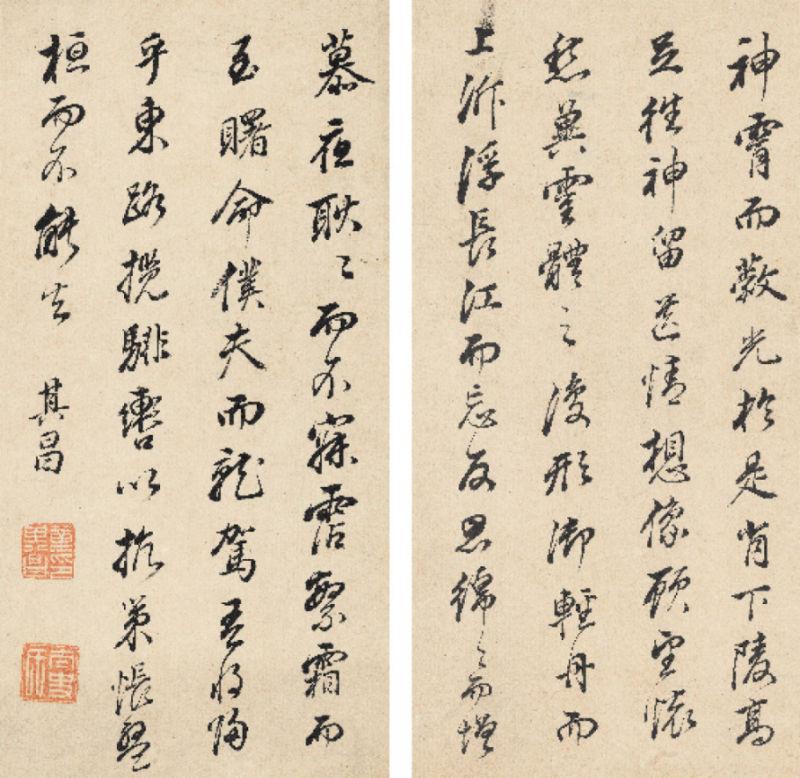 神霄而蔽光於是背下陵高
足往神留遺情想像顧望懷
愁冀靈體之復形御輕舟而
上泝浮長江而忘反思綿〻而增
慕夜耿〻而不寐霑繁霜而
至曙命僕夫而就駕吾將歸
乎東路攬騑轡以抗策悵盤
桓而不能去 其昌